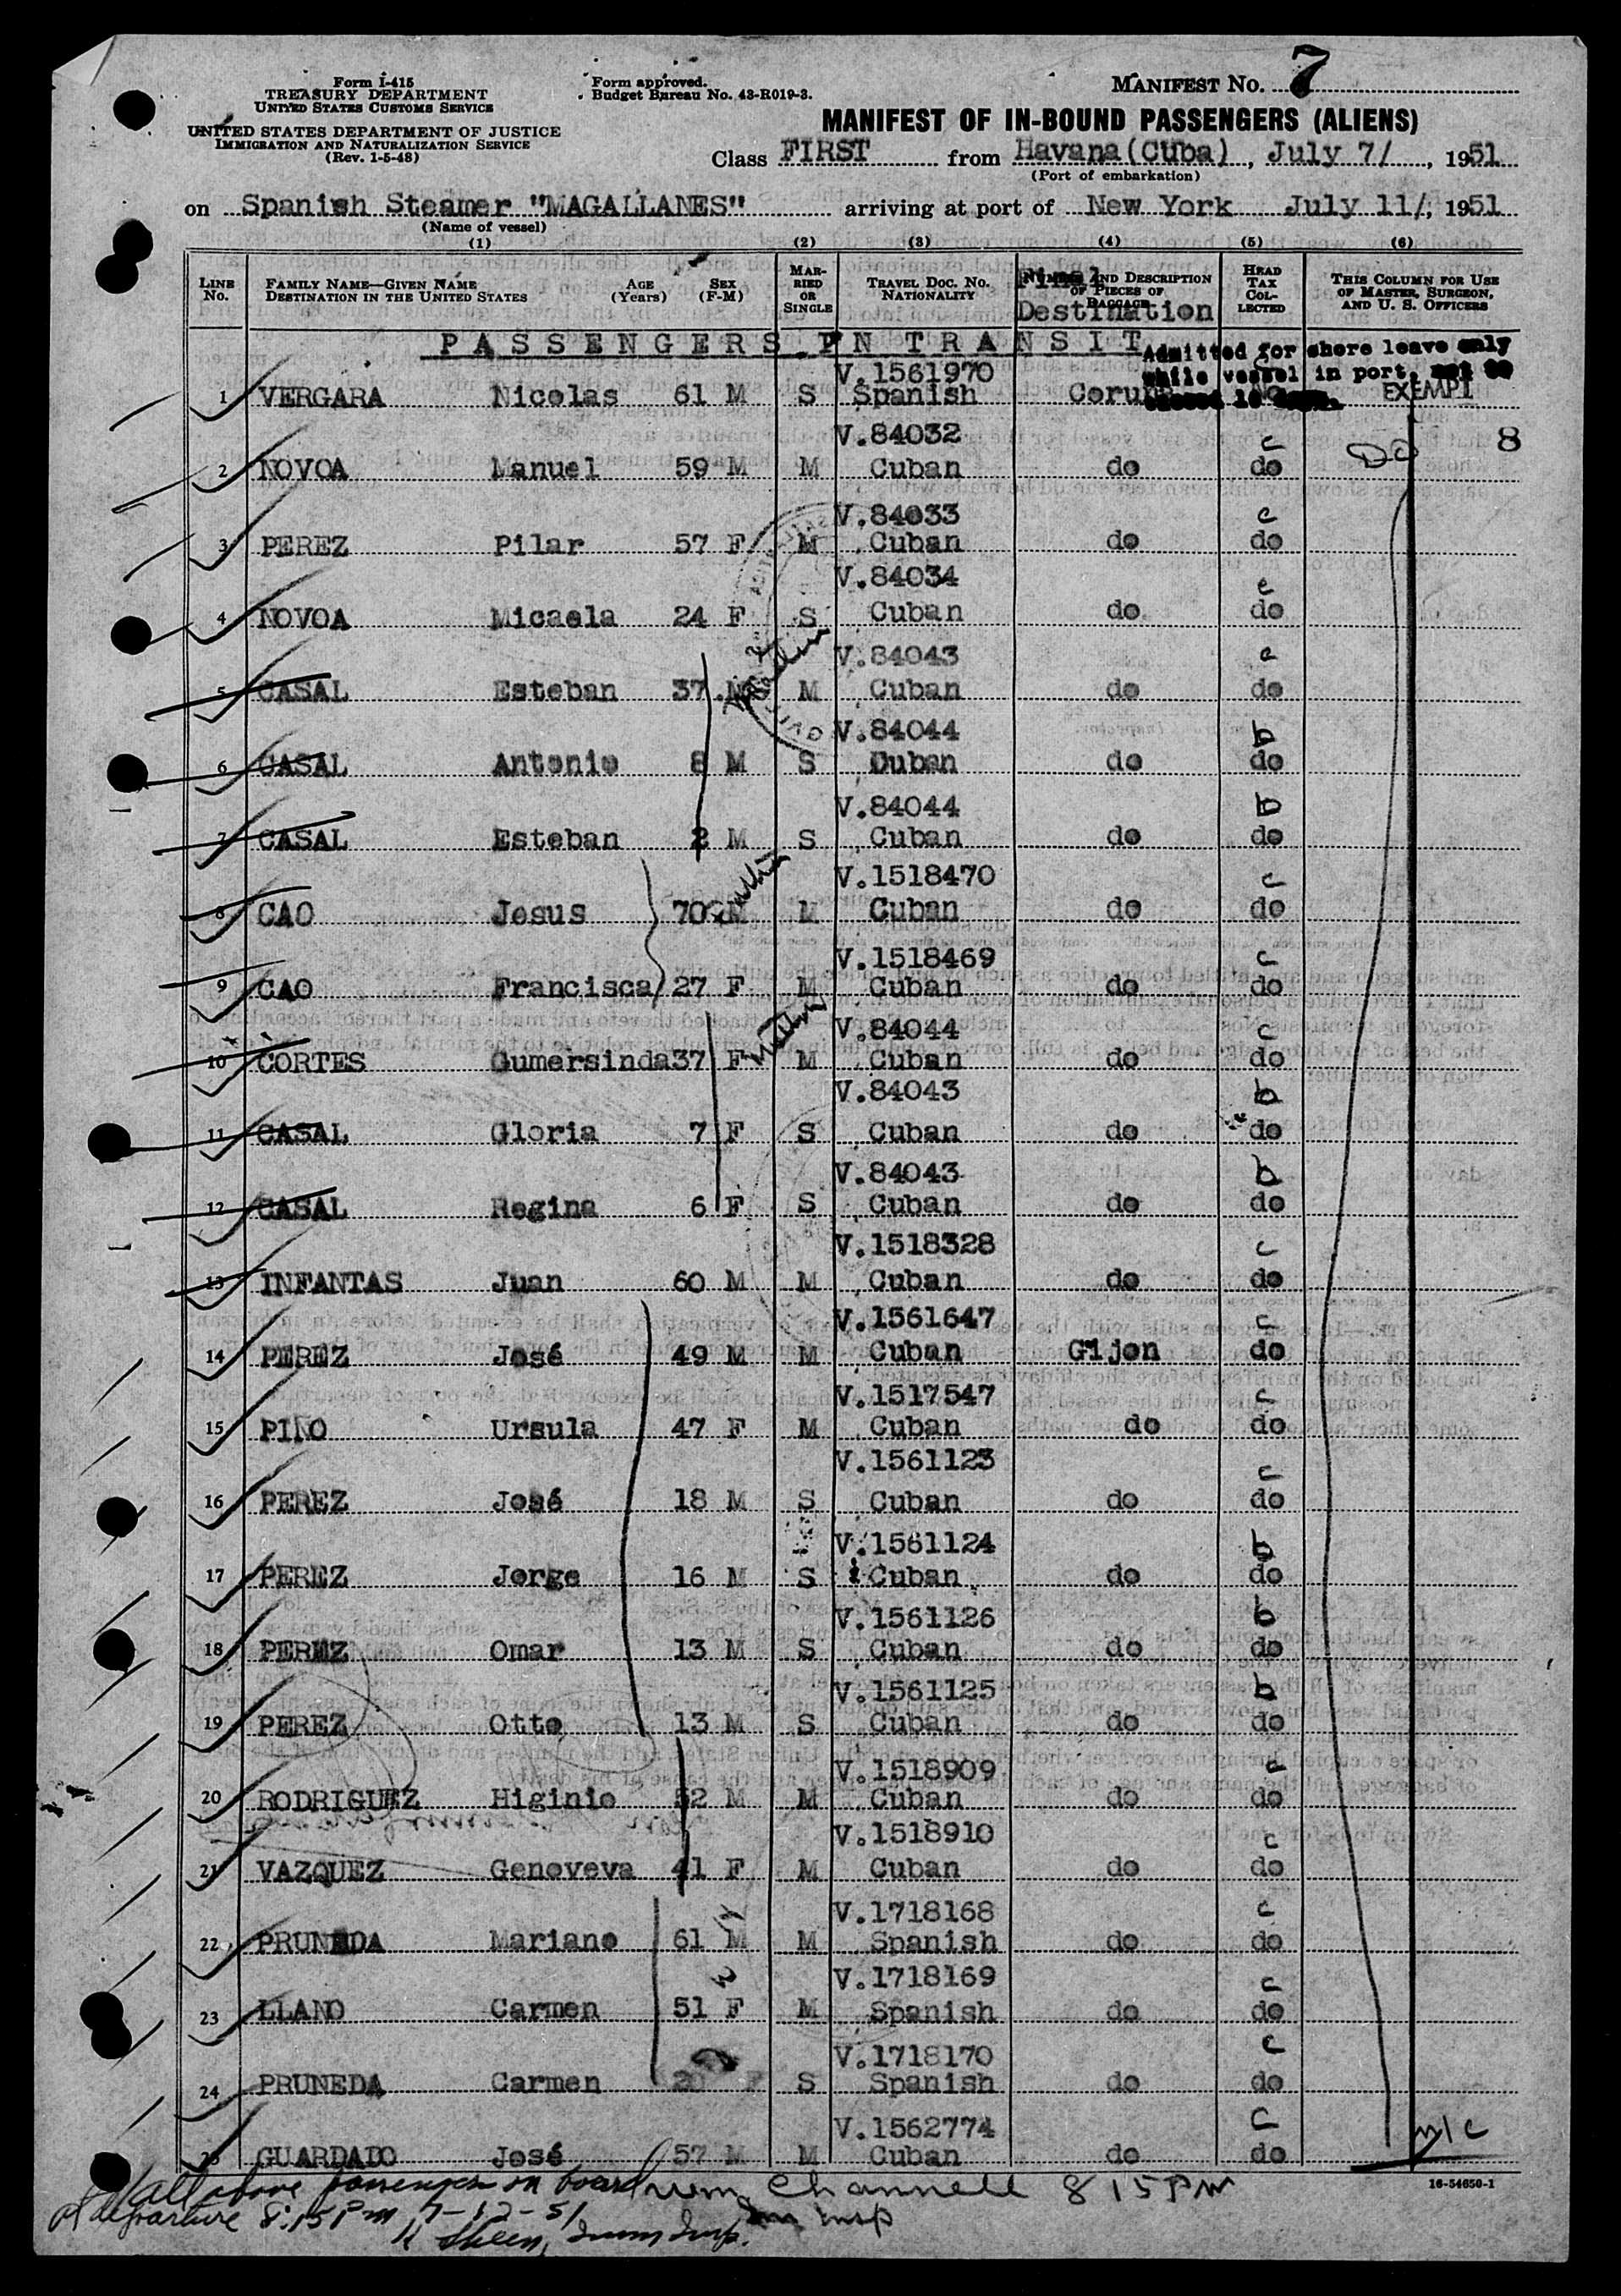 Form I-415
TREASURY DEPARTMENT
UNITED STATES CUSTOMS SERVICE
UNITED STATES DEPARTMENT OF JUSTICE
IMMIGRATION AND NATURALIZATION SERVICE
(Rev. 1-5-48)
Form approved.
Budget Bureau No. 43-R019-3.
MANIFEST No. 7
MANIFEST OF IN-BOUND PASSENGERS (ALIENS)
Class FIRST from Havana (Cuba), July 7/, 1951
(Port of embarkation)
on Spanish Steamer "MAGALLANES" arriving at port of New York July 11/, 1951
(Name of vessel)
(1) (2) (3) (4) (5) (6)
LINE No. FAMILY NAME—GIVEN NAME DESTINATION IN THE UNITED STATES AGE (Years) SEX (F-M) MARRIED OR SINGLE TRAVEL DOC. No. NATIONALITY NUMBER AND DESCRIPTION OF PIECES OF BAGGAGE Final Destination HEAD TAX COLLECTED THIS COLUMN FOR USE OF MASTER, SURGEON, AND U. S. OFFICERS
PASSENGERS IN TRANSIT
Admitted for shore leave only
while vessel in port,
V.1561970
1 VERGARA Nicolas 61 M S Spanish Coruña No EXEMPT
V.84032 c 8
2 NOVOA Manuel 59 M M Cuban do do Do
V.84033 c
3 PEREZ Pilar 57 F M Cuban do do
V.84034 c
4 NOVOA Micaela 24 F S Cuban do do
V.84043 c
5 CASAL Esteban 37 M M Cuban do do
V.84044 b
6 CASAL Antonio 8 M S Duban do do
V.84044 b
7 CASAL Esteban 2 M S Cuban do do
V.1518470 c
8 CAO Jesus 70 M M Cuban do do
V.1518469 c
9 CAO Francisca 27 F M Cuban do do
V.84044 c
10 CORTES Gumersinda 37 F M Cuban do do
V.84043 b
11 CASAL Gloria 7 F S Cuban do do
V.84043 b
12 CASAL Regina 6 F S Cuban do do
V.1518328 c
13 INFANTAS Juan 60 M M Cuban do do
V.1561647 c
14 PEREZ José 49 M M Cuban Gijon do
V.1517547 c
15 PINO Ursula 47 F M Cuban do do
V.1561123 c
16 PEREZ José 18 M S Cuban do do
V.1561124 b
17 PEREZ Jorge 16 M S Cuban do do
V.1561126 b
18 PEREZ Omar 13 M S Cuban do do
V.1561125 b
19 PEREZ Otto 13 M S Cuban do do
V.1518909 c
20 RODRIGUEZ Higinio 52 M M Cuban do do
V.1518910 c
21 VAZQUEZ Genoveva 41 F M Cuban do do
V.1718168 c
22 PRUNEDA Mariano 61 M M Spanish do do
V.1718169 c
23 LLANO Carmen 51 F M Spanish do do
V.1718170 c
24 PRUNEDA Carmen 20 F S Spanish do do
V.1562774 c m/c
25 GUARDADO José 57 M M Cuban do do
16-54650-1
All above passengers on board
at departure 8:15 PM 7-12-51
Imm Insp.
Channell 8 15 PM
Im Insp